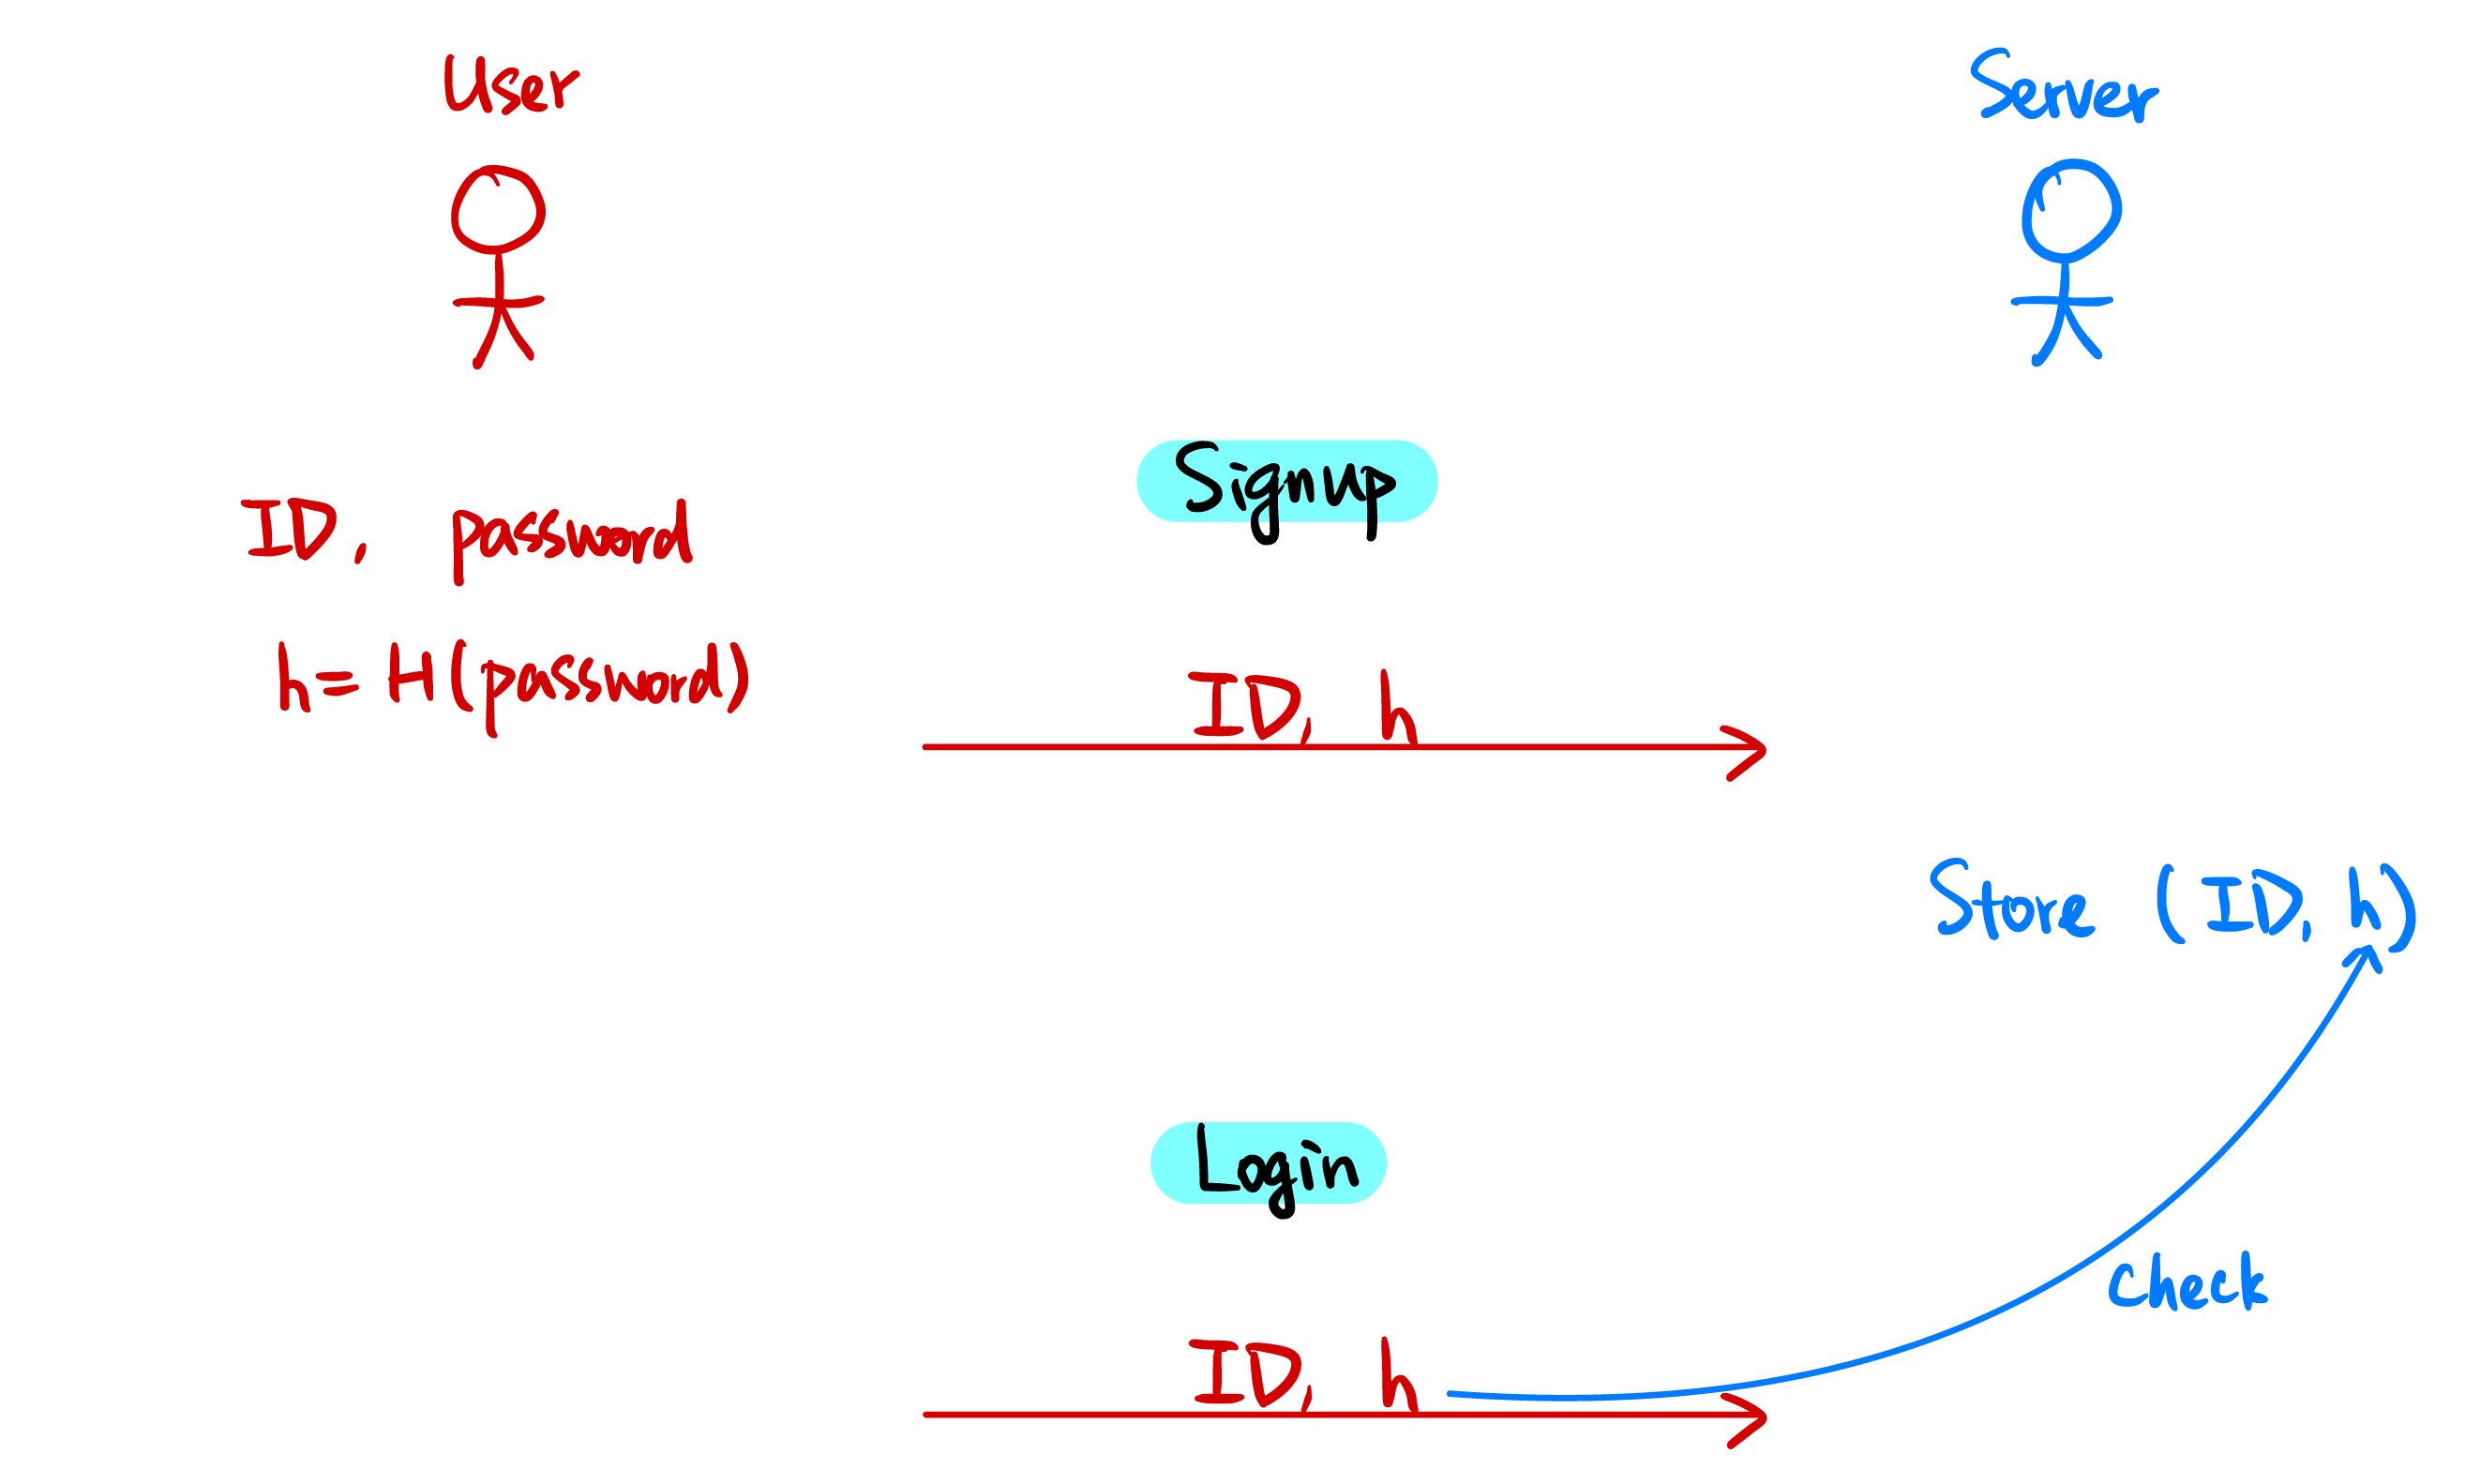 User
Server
Signup
ID, password
h = H(password)
ID, h
Store (ID, h)
Login
check
ID, h